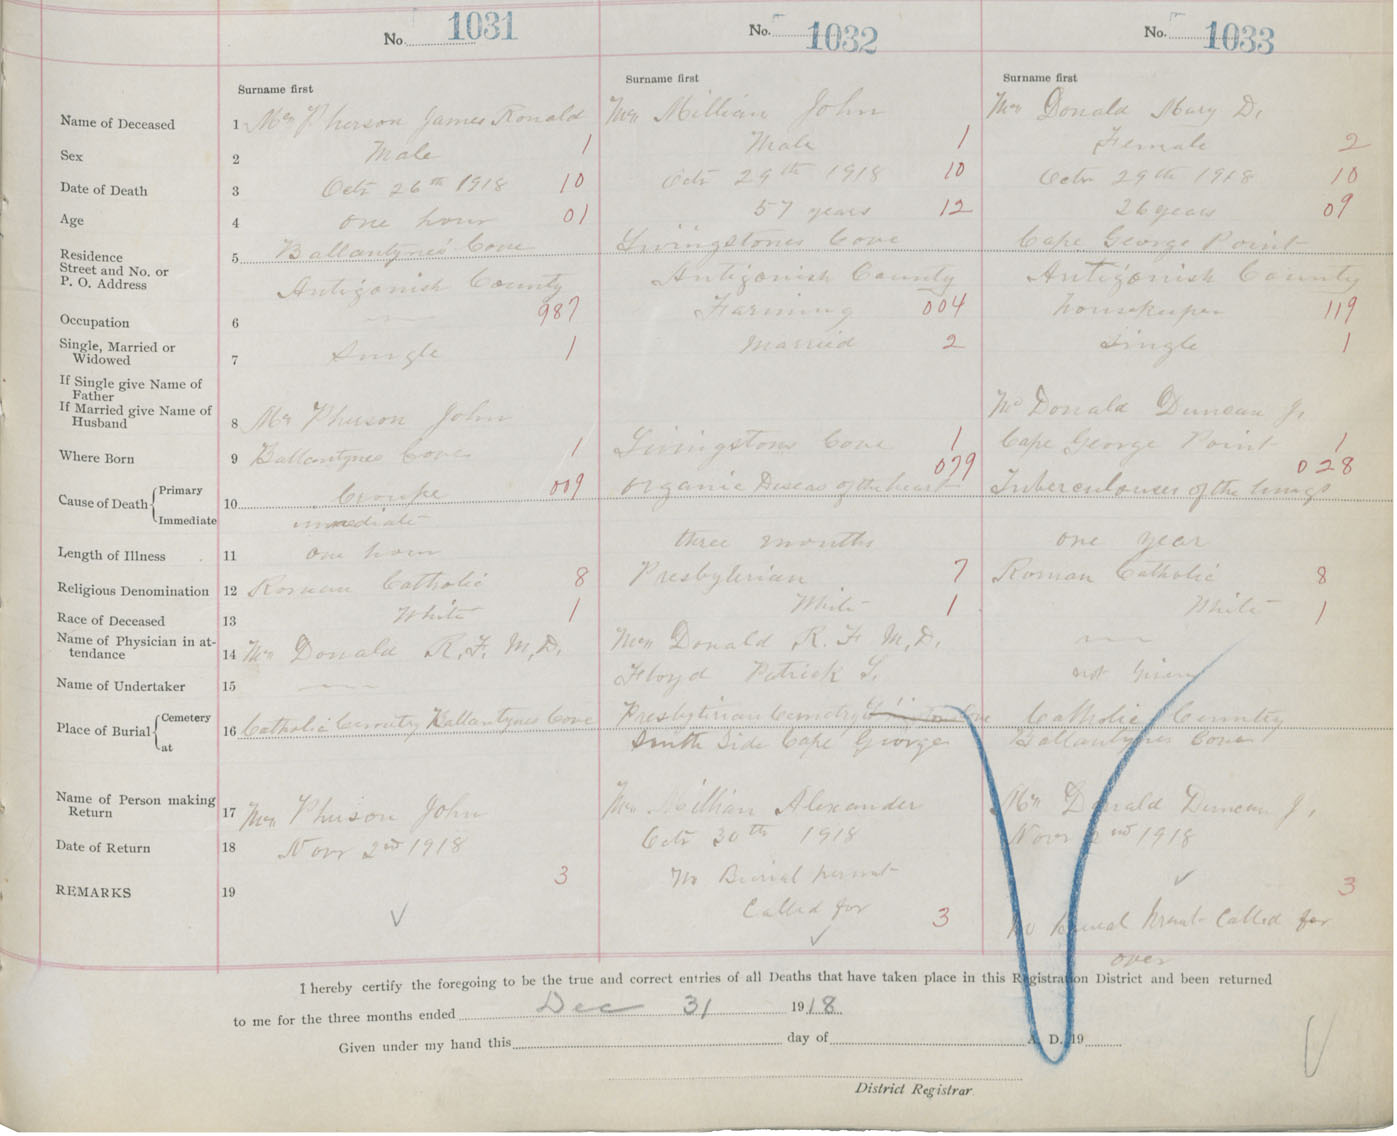 No. 1031
No. 1032
No. 1033
Surname first
Surname first
Surname first
Name of Deceased 1 Mc Pherson James Ronald
Mc Millian John
Mc Donald Mary D.
Sex 2 Male 1
Male 1
Female 2
Date of Death 3 Octr 26th 1918 10
Octr 29th 1918 10
Octr 29th 1918 10
Age 4 one hour 01
57 years 12
26 years 09
Residence
Street and No. or
P. O. Address
5 Ballantynes Cove
Antigonish County
Livingstones Cove
Antigonish County
Cape George Point
Antigonish County
Occupation 6 987
Farming 004
housekeeper 119
Single, Married or
Widowed
7 Single 1
Married 2
Single 1
If Single give Name of
Father
If Married give Name of
Husband
8 Mc Pherson John
Mc Donald Duncan J.
Where Born 9 Ballantynes Cove 1
Livingstons Cove 1
Cape George Point 1
Cause of Death Primary
Immediate
10 Croupe 009
immediate
organic Diseas of the heart 079
Tuberculouses of the lungs 028
Length of Illness 11 one hour
three months
one year
Religious Denomination 12 Roman Catholic 8
Presbyterian 7
Roman Catholic 8
Race of Deceased 13 White 1
White 1
White 1
Name of Physician in at-
tendance
14 Mc Donald R. F. M.D.
Mc Donald R. F. M.D.
Name of Undertaker 15
Floyd Patrick S.
not given
Place of Burial Cemetery
at
16 Catholic Cemetry Ballantynes Cove
Presbyterian Cemetry
South Side Cape George
Catholic Cemetry
Ballantynes Cove
Name of Person making
Return
17 Mc Pherson John
Mc Millian Alexander
Mc Donald Duncan J.
Date of Return 18 Novr 2nd 1918
Octr 30th 1918
Novr 2nd 1918
REMARKS 19 3
No Burial permit
Called for 3
3
No Burial Permit Called for
over
I hereby certify the foregoing to be the true and correct entries of all Deaths that have taken place in this Registration District and been returned
to me for the three months ended Dec 31 1918
Given under my hand this day of A. D. 19
District Registrar.